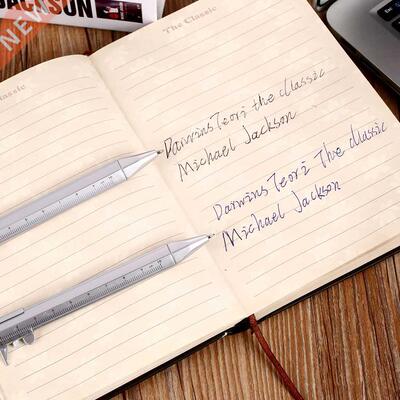 NEW
JACKSON
Classic
The Classic
Darwins Teori the classic
Michael Jackson
Darwins Teori The classic
Michael Jackson